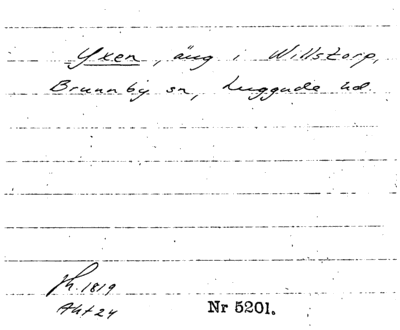 Yxen, äng i Willstorp,
Brunnby sn, Luggude hd.
Jh. 1819
Akt 24
Nr 5201.